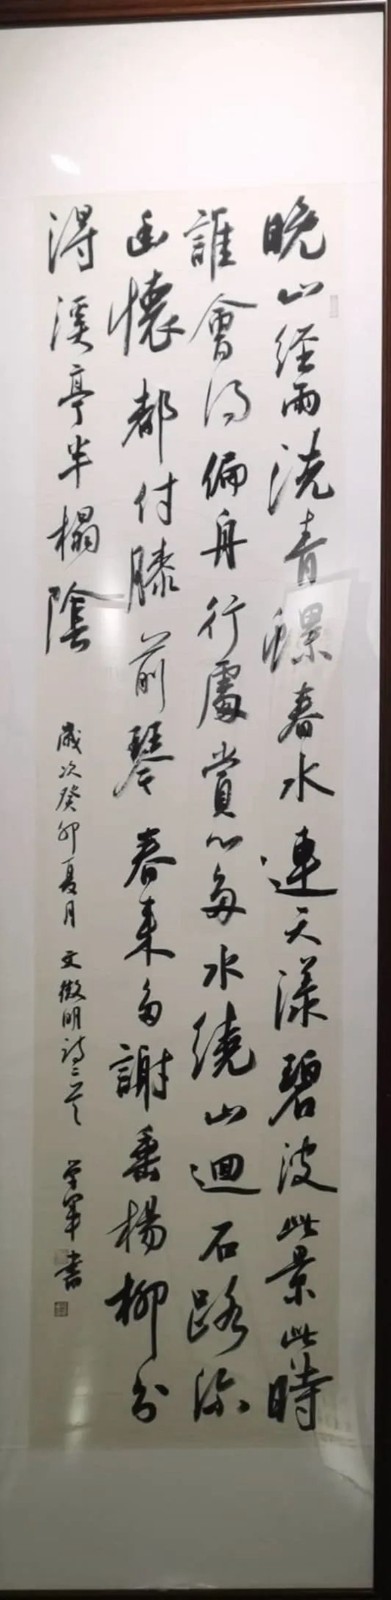 晚山经雨洗青螺春水连天漾碧波此景此時
誰會得偏舟行處賞心多水繞山迴石路深
幽懷都付膝前琴春来多謝垂楊柳分
得溪亭半榻陰
歲次癸卯夏月文徵明詩二首
学军書